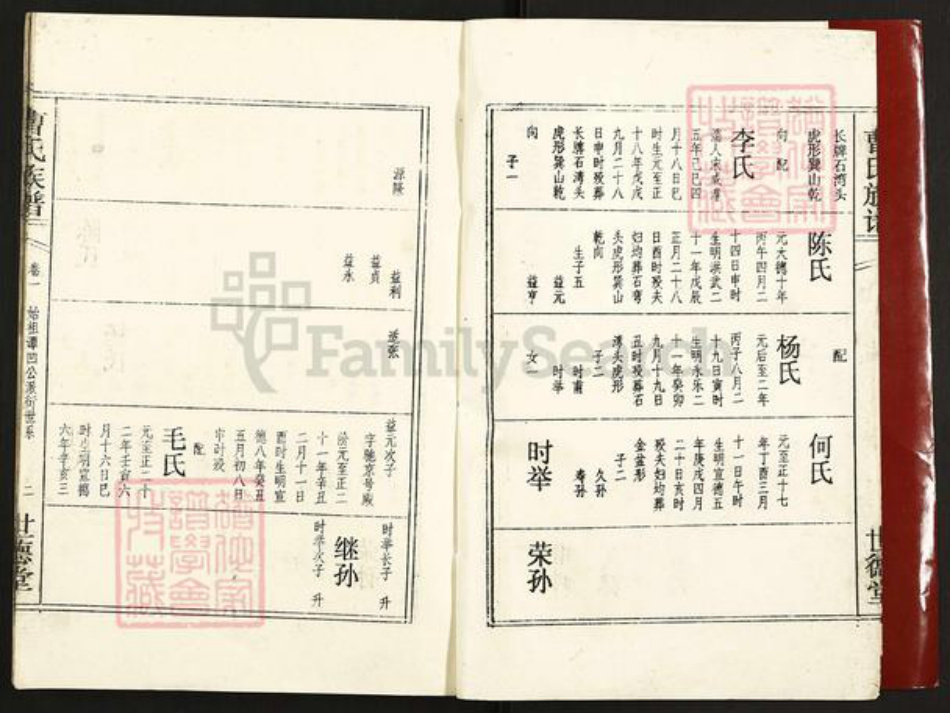 曹氏族谱
世德堂
长牌石湾头
虎形巽山乾
向 配
李氏
五年己巳四
月十八日巳
时生元至正
十八年戊戌
九月二十八
日申时殁葬
长牌石湾头
虎形巽山乾
向
子一
陈氏
元大德十年
丙午四月二
十四日申时
生明洪武二
十一年戊辰
正月二十八
日酉时殁夫
妇均葬石弯
头虎形巽山
乾向
生子五
益元
益亨
配
杨氏
元后至二年
丙子八月二
十九日寅时
生明永乐二
十一年癸卯
九月十九日
丑时殁葬石
湾头虎形
子二
时甫
时举
女
何氏
元至正十七
年丁酉三月
十一日午时
生明宣德五
年庚戌四月
二十日亥时
殁夫妇均葬
金盆形
子二
久孙
寿孙
时举
荣孙
源隆
益利
益贞
益永
适张
益元次子
字驰京号殿
元至正二
十一年辛丑
二月十一日
酉时生明宣
德八年癸丑
五月初八日
时殁
配
毛氏
元至正二十
二年壬寅六
月十六日巳
时生明宣德
六年辛亥三
时举长子 升
继孙
时举次子 升
曹氏族谱
卷一 始祖谭凹公派衍世系
二
世德堂
FamilySearch